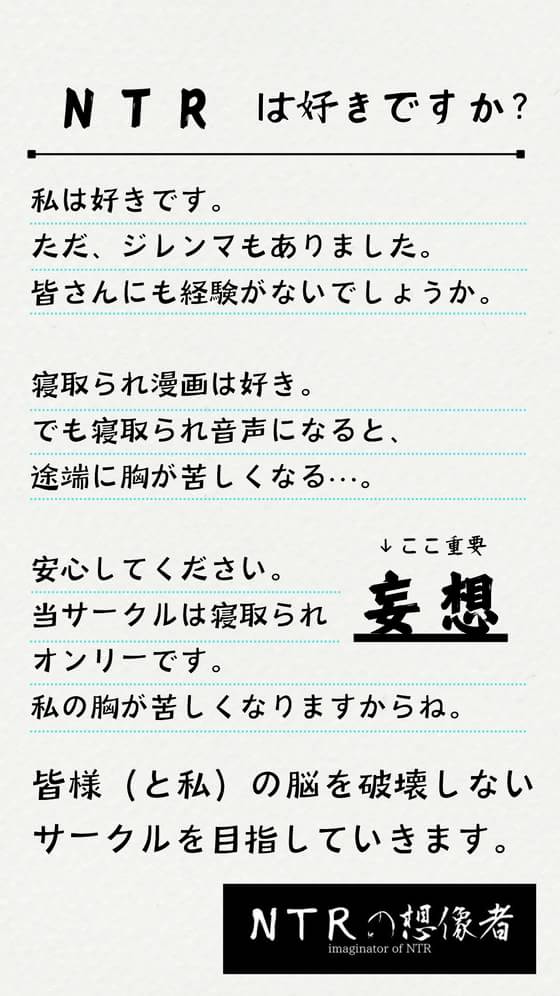 NTR は好きですか?
私は好きです。
ただ、ジレンマもありました。
皆さんにも経験がないでしょうか。
寝取られ漫画は好き。
でも寝取られ音声になると、
途端に胸が苦しくなる…。
安心してください。
↓ここ重要
当サークルは寝取られ妄想
オンリーです。
私の胸が苦しくなりますからね。
皆様（と私）の脳を破壊しない
サークルを目指していきます。
NTRの想像者
imaginator of NTR